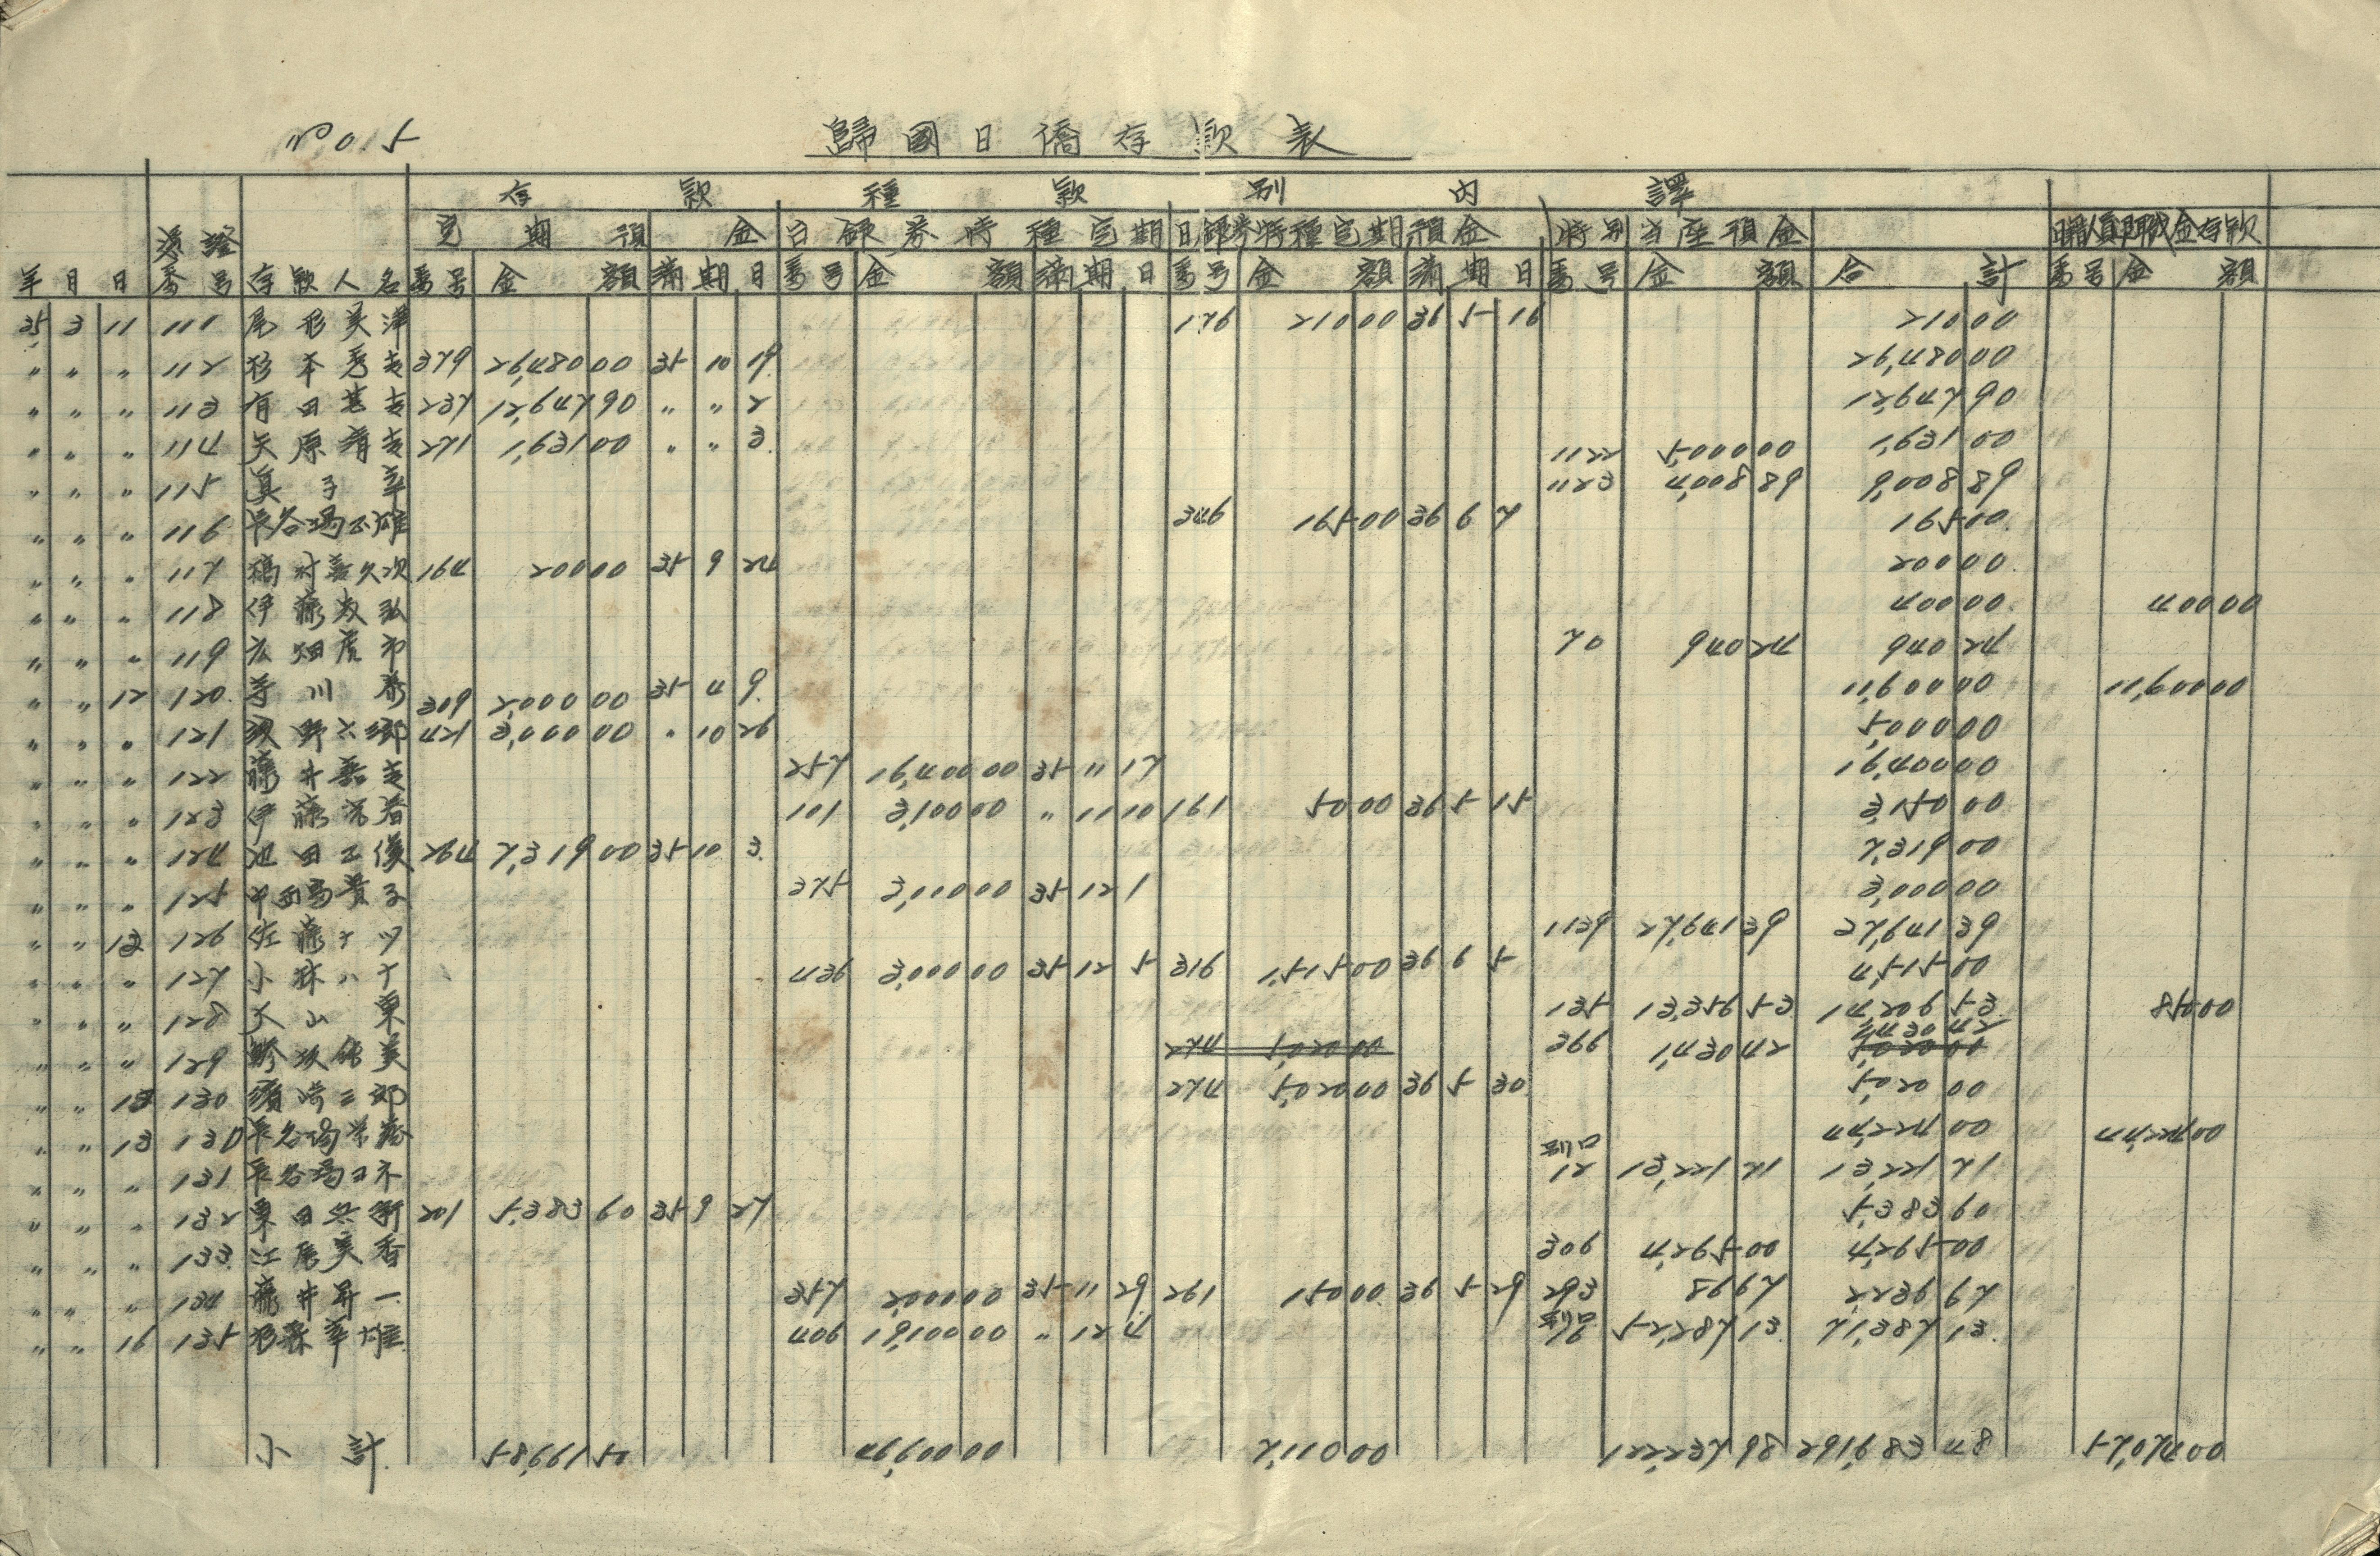 No. 5
歸國日僑存款表
存款種款別內譯
定期預金 日銀券特種定期 日銀券特種定期預金 特別当座預金 金存款
年 月 日 番号 存款人名 番号 金額 満期日 番号 金額 満期日 番号 金額 満期日 番号 金額 合計 番号 金額
35 3 11 111 尾形美津 176 210 00 36 5 16 210 00
〃 〃 〃 112 杉本秀吉 379 26,480 00 35 10 19 26,480 00
〃 〃 〃 113 有田吉 237 12,647 90 〃 〃 2 12,647 90
〃 〃 〃 114 矢原清吉 271 1,631 00 〃 〃 3 1,631 00
1122 5,000 00
〃 〃 〃 115 真子幸 1123 4,008 89 9,008 89
〃 〃 〃 116 長谷場正雄 346 165 00 36 6 7 165 00
〃 〃 〃 117 村喜久次 164 200 00 35 9 24 200 00
〃 〃 〃 118 伊藤弘 400 00 400 00
〃 〃 〃 119 畑虎市 70 940 24 940 24
〃 〃 12 120 寺川 11,600 00 11,600 00
309 2,000 00 35 4 9
〃 〃 〃 121 野六郎 421 3,000 00 〃 10 26 5,000 00
〃 〃 〃 122 藤井嘉吉 257 16,400 00 35 11 17 16,400 00
〃 〃 〃 123 伊藤常春 101 3,100 00 〃 11 10 161 50 00 36 5 15 3,150 00
〃 〃 〃 124 池田正俊 264 7,319 00 35 10 3 7,319 00
〃 〃 〃 125 中西高貴子 375 3,000 00 35 12 1 3,000 00
〃 〃 13 126 佐藤ツ 1139 27,641 39 27,641 39
〃 〃 〃 127 小林ハナ 436 3,000 00 35 12 5 316 1,515 00 36 6 5 4,515 00
〃 〃 〃 128 大山東 135 13,356 53 14,206 53 850 00
〃 〃 〃 129 鯵坂美 274 5,020 00 366 1,430 42 1,430 42 5,020 00
〃 〃 13 130 須崎三郎 274 5,020 00 36 5 30 5,020 00
〃 〃 13 130 長谷場常 44,224 00 44,224 00
〃 〃 〃 131 長谷場ヨネ 別口 12 13,221 71 13,221 71
〃 〃 〃 132 東田衛 201 5,383 60 35 9 27 5,383 60
〃 〃 〃 133 江尾美香 306 4,265 00 4,265 00
〃 〃 〃 134 藤井昇一 357 2,000 00 35 11 29 261 150 00 36 5 29 293 86 67 2,236 67
〃 〃 16 135 杉森幸雄 406 19,100 00 〃 12 4 別口 16 52,287 13 71,387 13
小計 58,661 50 46,600 00 7,110 00 122,237 98 291,683 48 57,074 00